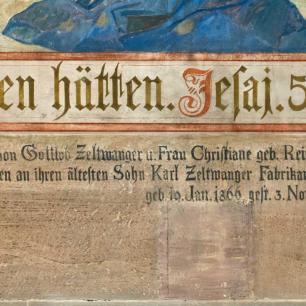 en hätten. Jesaj. 5
on Gottlob Zeltwanger u. Frau Christiane geb. Rei
en an ihren ältesten Sohn Karl Zeltwanger Fabrikan
geb. 19. Jan. 1866, gest. 3. No